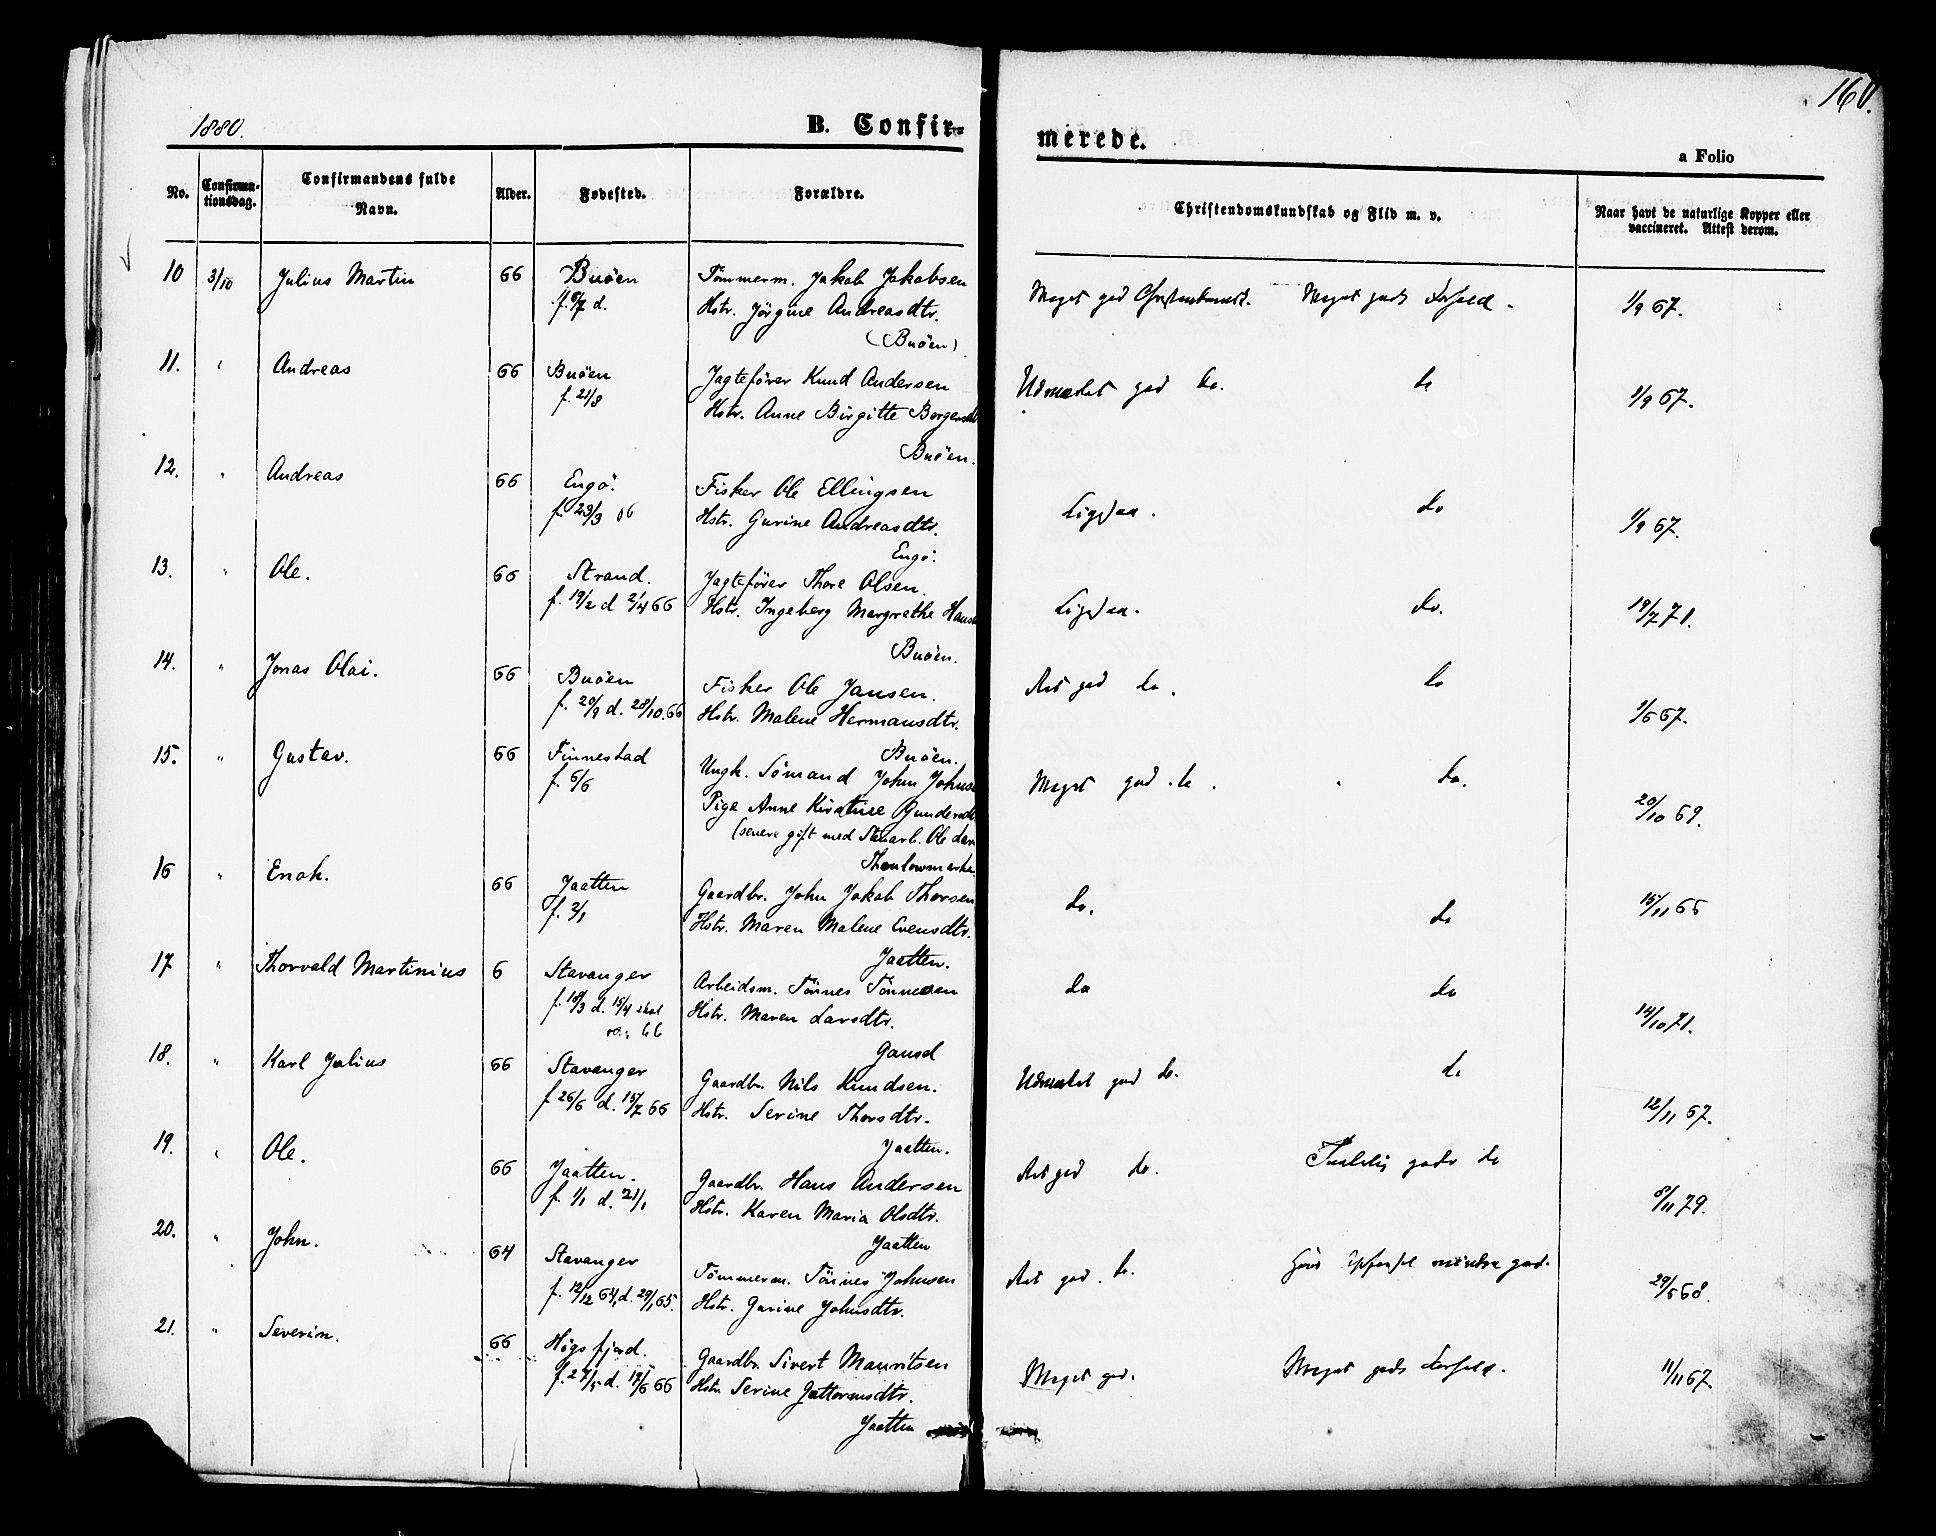 1880.
160.
B. Confir-
merede.
a Folio
No.
Confirma-
tionsdag.
Confirmandens fulde
Navn.
Alder.
Fødested.
Forældre.
Christendomskundskab og Flid m. v.
Naar havt de naturlige Kopper eller
vaccineret. Attest derom.
10 3/10 Julius Martin 66 Buöen Tömmerm. Jakob Jakobsen Meget god Meget godt Forhold. 1/9 67.
Hstr. Jörgine Andreasdtr.
(Buöen).
11. " Andreas 66 Buöen Jagtefører Knud Andersen Udmærket god do. do 1/9 67.
f. 21/8 Hstr. Anne Birgitte
Buöen.
12. " Andreas 66 Engö. Fisker Ole Ellingsen Ligesaa. do 1/9 67.
f. 23/3 66 Hstr. Gurine Andreasdtr.
Engö.
13. " Ole. 66 Strand. Jagtefører Thore Olsen. Ligesaa. do. 19/7 71.
f. 19/2 d 2/4 66 Hstr. Ingeberg Margrethe
Buöen.
14. " Jonas Olai. 66 Buöen Fisker Ole Jansen. Ret god do. do
f. 20/9 d. 28/10. 66 Hstr. Malene Hermansdtr.
Buöen.
15. " Gustav. 66 Finnestad Ungk. Sömand John Meget god do. do. 20/10 69.
f. 6/6 Pige Anne
(senere gift med Ole
16 " Enok. 66 Jaatten Gaardbr. John Jakob Thorsen do. do 15/11 66
f. 2/1 Hstr. Maren Malene Evensdtr.
Jaatten.
17 " Thorvald Martinius 6 Stavanger Arbeidsm. Tönnes Tönnesen do do 14/10 71.
f. 18/3 d. 15/4 skal Hstr. Maren Larsdtr.
66
Gausel
18. " Karl Julius 66 Stavanger Gaardbr. Nils Knudsen. Udmærket god do. do 12/11 67.
f 26/6 d. 15/7 66 Hstr. Serine Thorsdtr.
Jaatten.
19. " Ole. 66 Jaatten. Gaardbr. Hans Andersen Ret god do. godt do 8/11 79.
f. 1/1 d. 21/1 Hstr. Karen Maria Olsdtr.
Jaatten
20. " John. 64 Stavanger Tömmerm. Tönnes Johnsen Ret god do. mindre god.
f. 12/12 64, d. 29/1 65. Hstr. Gurine Johnsdtr.
21. " Severin. 66 Högsfjord. Gaardbr. Sivert Mauritsen Meget god. Meget godt Forhold. 11/11 67.
f. 27/5 d. 17/6 66 Hstr. Serine
Jaatten